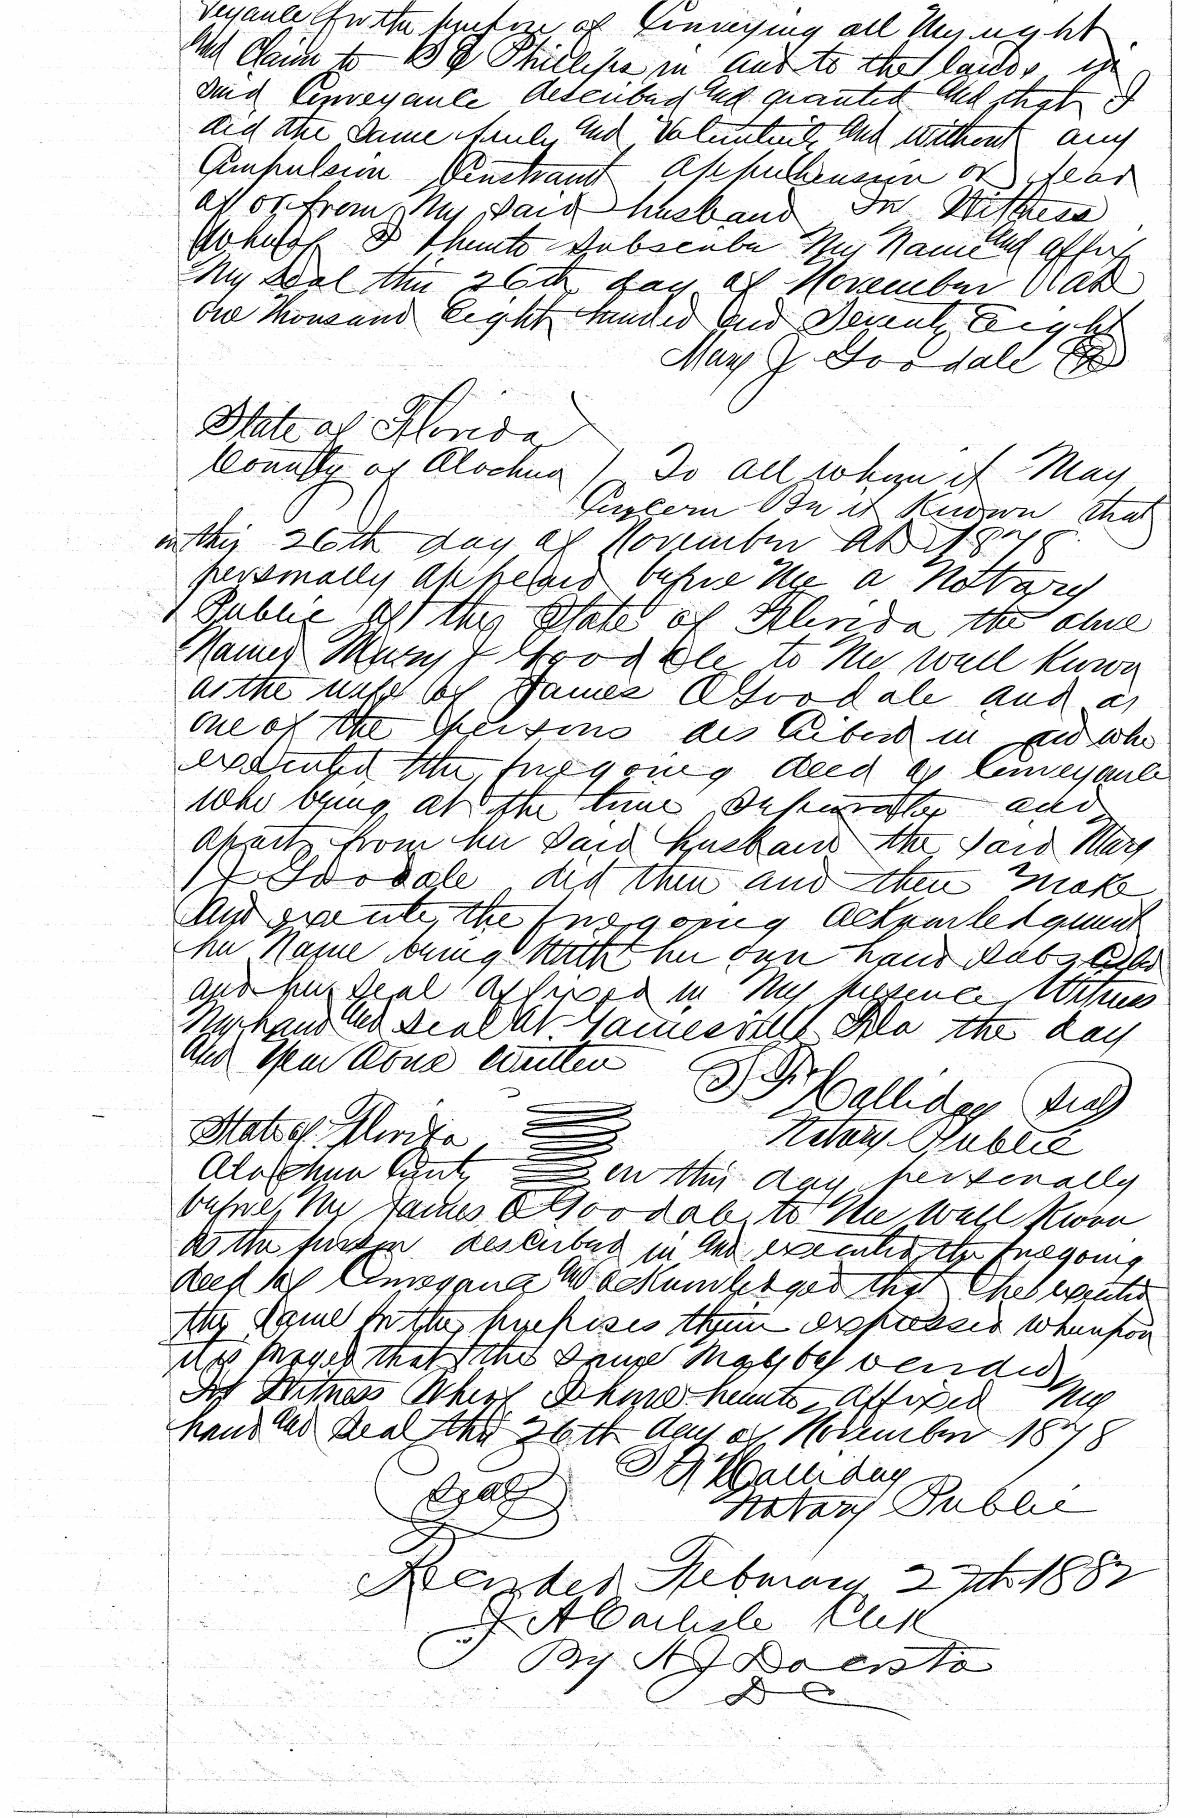 veyance for the purpose of Conveying all My right
And Claim to B C Phillips in and to the lands in
said Conveyance described and granted and that I
did the same freely and Voluntarily and without any
Compulsion Constraint apprehension or fear
of or from My said husband In Witness
Whereof I hereunto subscribe My Name and affix
My Seal this 26th day of November AD
one Thousand Eight hundred and Seventy Eight
Mary J Goodale
State of Florida
County of Alachua ) To all whom it May
Concern Be it Known that
on this 26th day of November AD 1878
personally appeared before Me a Notary
Public of the State of Florida the above
Named Mary J Goodale to Me well Known
as the wife of James A Goodale and as
one of the persons described in and who
executed the foregoing deed of Conveyance
who being at the time separate and
apart from her said husband the said Mary
J Goodale did then and there make
and execute the foregoing acknowledgment
her Name being with her own hand subscribed
and her seal affixed in My presence Witness
My hand and seal at Gainesville Fla the day
and year above written
S F Halliday Seal
State of Florida Notary Public
Alachua County on this day personally
before Me James A Goodale to Me well Known
as the person described in and executed the foregoing
deed of Conveyance and acknowledged that he executed
the same for the purposes therein expressed whereupon
it is prayed that the same May be recorded
In Witness Whereof I have hereunto affixed My
hand and seal this 26th day of November 1878
S F Halliday
Seal Notary Public
Recorded February 27th 1882
J A Carlisle Clerk
By A J Dacosta
D C